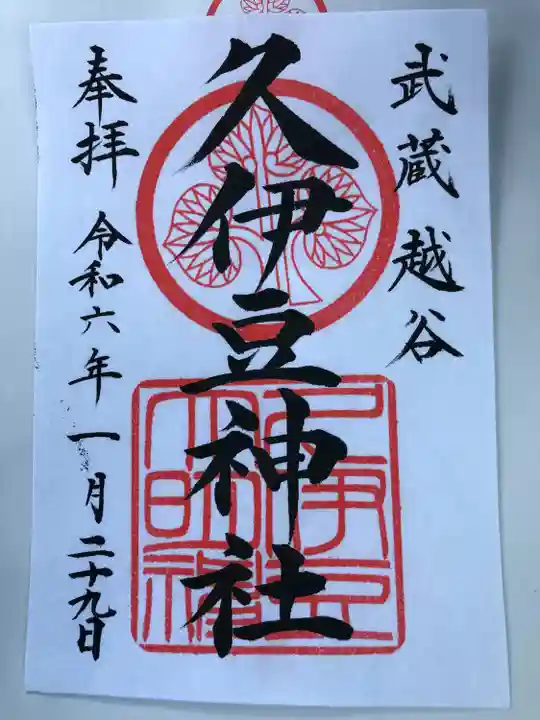 武蔵越谷
久伊豆神社
奉拝 令和六年一月二十九日